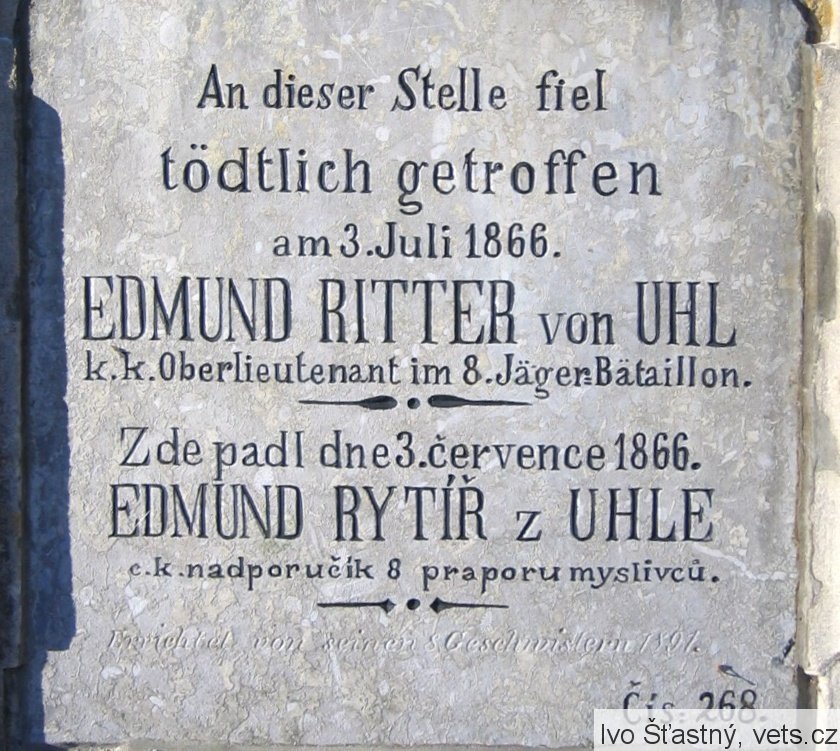 An dieser Stelle fiel
tödtlich getroffen
am 3. Juli 1866.
EDMUND RITTER von UHL
k. k. Oberlieutenant im 8. Jäger=Bätaillon.
Zde padl dne 3. července 1866.
EDMUND RYTÍŘ z UHLE
c. k. nadporučík 8 praporu myslivců.
Errichtet von seinen 8 Geschwistern 1891.
Čís: 268.
Ivo Šťastný, vets.cz